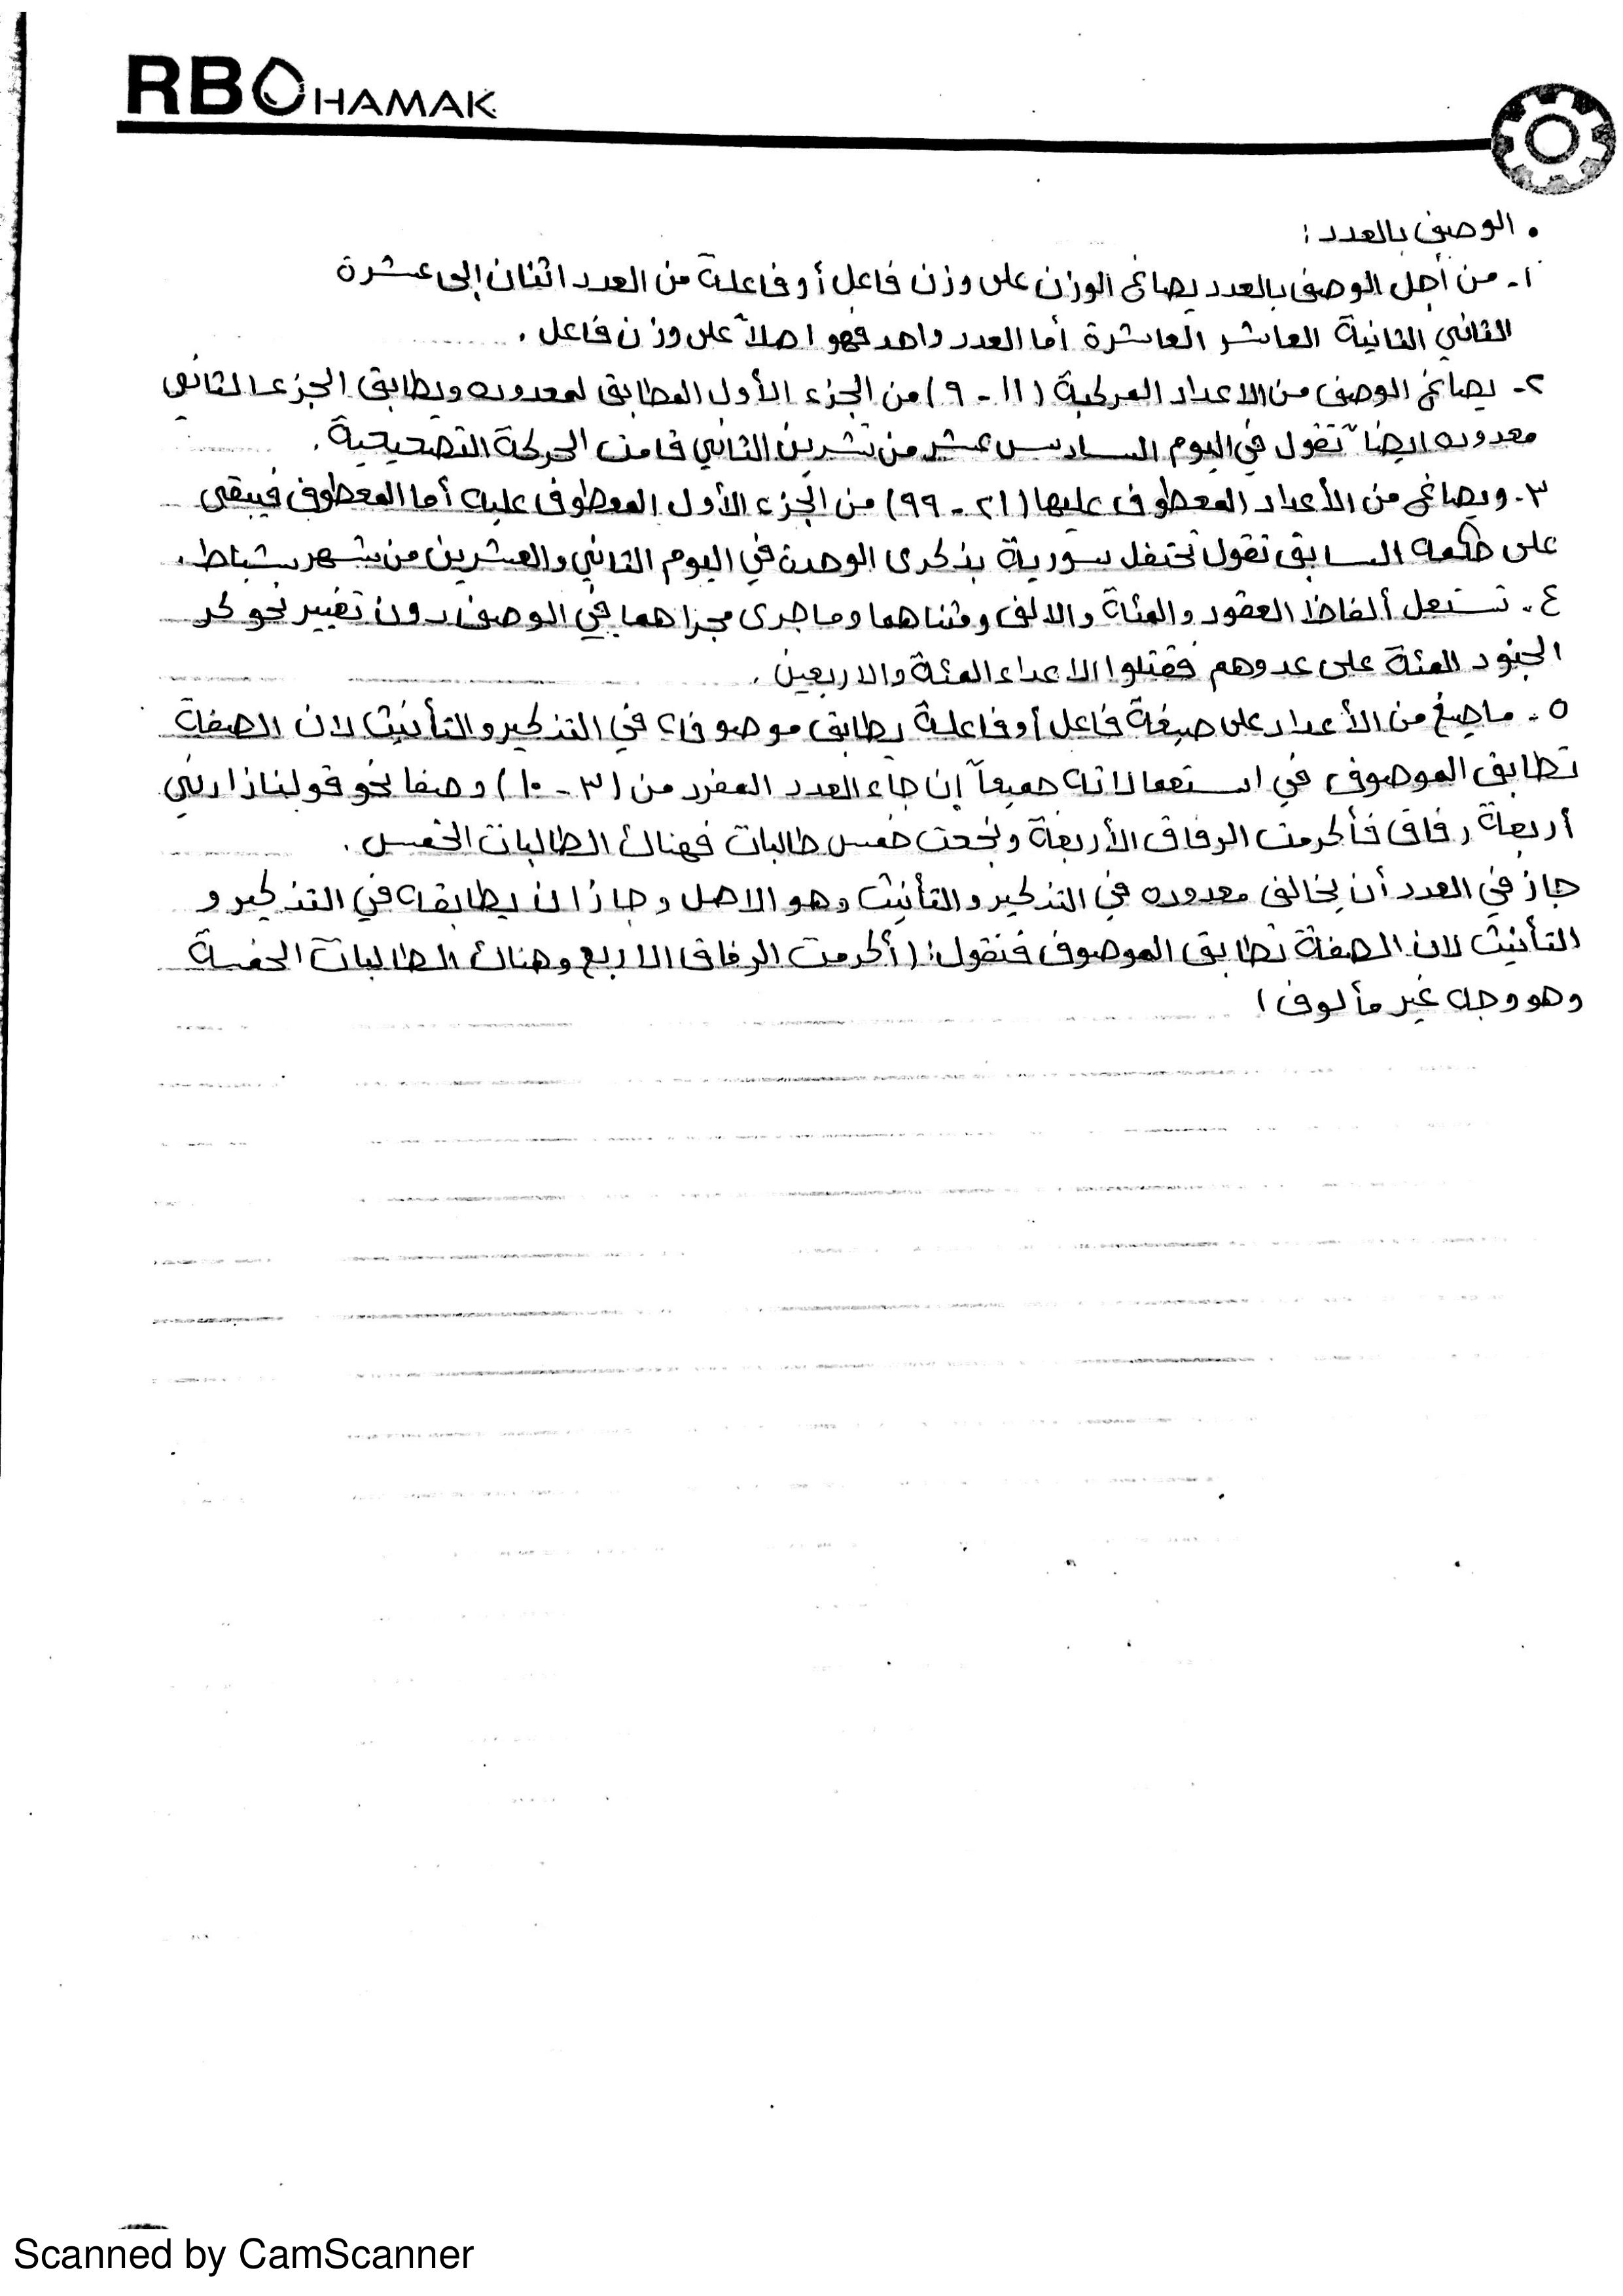 RBOHAMAK
• الوصف بالعدد :
١- من أجل الوصف بالعدد يصاغ الوزن على وزن فاعل أو فاعلة من العدد اثنان إلى عشرة
الثاني الثانية العاشر العاشرة أما العدد واحد فهو اصلاً على وزن فاعل .
٢- يصاغ الوصف من الاعداد المركبة (١١ - ٩) من الجزء الأول المطابق لمعدوده ويطابق الجزء الثاني
معدوده ايضاً تقول في اليوم السادس عشر من تشرين الثاني قامت الحركة التصحيحية .
٣- ويصاغ من الأعداد المعطوف عليها (٢١ - ٩٩) من الجزء الأول المعطوف عليه أما المعطوف فيبقى
على حكمه السابق تقول تحتفل سورية بذكرى الوحدة في اليوم الثاني والعشرين من شهر شباط .
٤- تستعمل ألفاظ العقود والمئة والالف ومثناهما وما جرى مجراهما في الوصف دون تغيير نحو كر
الجنود المئة على عدوهم فقتلوا الاعداء المئة والاربعين .
٥- ما صيغ من الأعداد على صيغة فاعل أو فاعلة يطابق موصوفاً في التذكير والتأنيث لان الصفة
تطابق الموصوف في استعمالاته جميعاً إن جاء العدد المفرد من (٣ - ١٠) وصفا نحو قولنا زارني
أربعة رفاق فأكرمت الرفاق الأربعة ونجحت خمس طالبات فهناك الطالبات الخمس .
جاز في العدد أن يخالف معدوده في التذكير والتأنيث وهو الاصل وجاز ان يطابقه في التذكير و
التأنيث لان الصفة تطابق الموصوف فنقول : (أكرمت الرفاق الاربع وهناك الطالبات الخمسة
وهو وجه غير مألوف)
Scanned by CamScanner